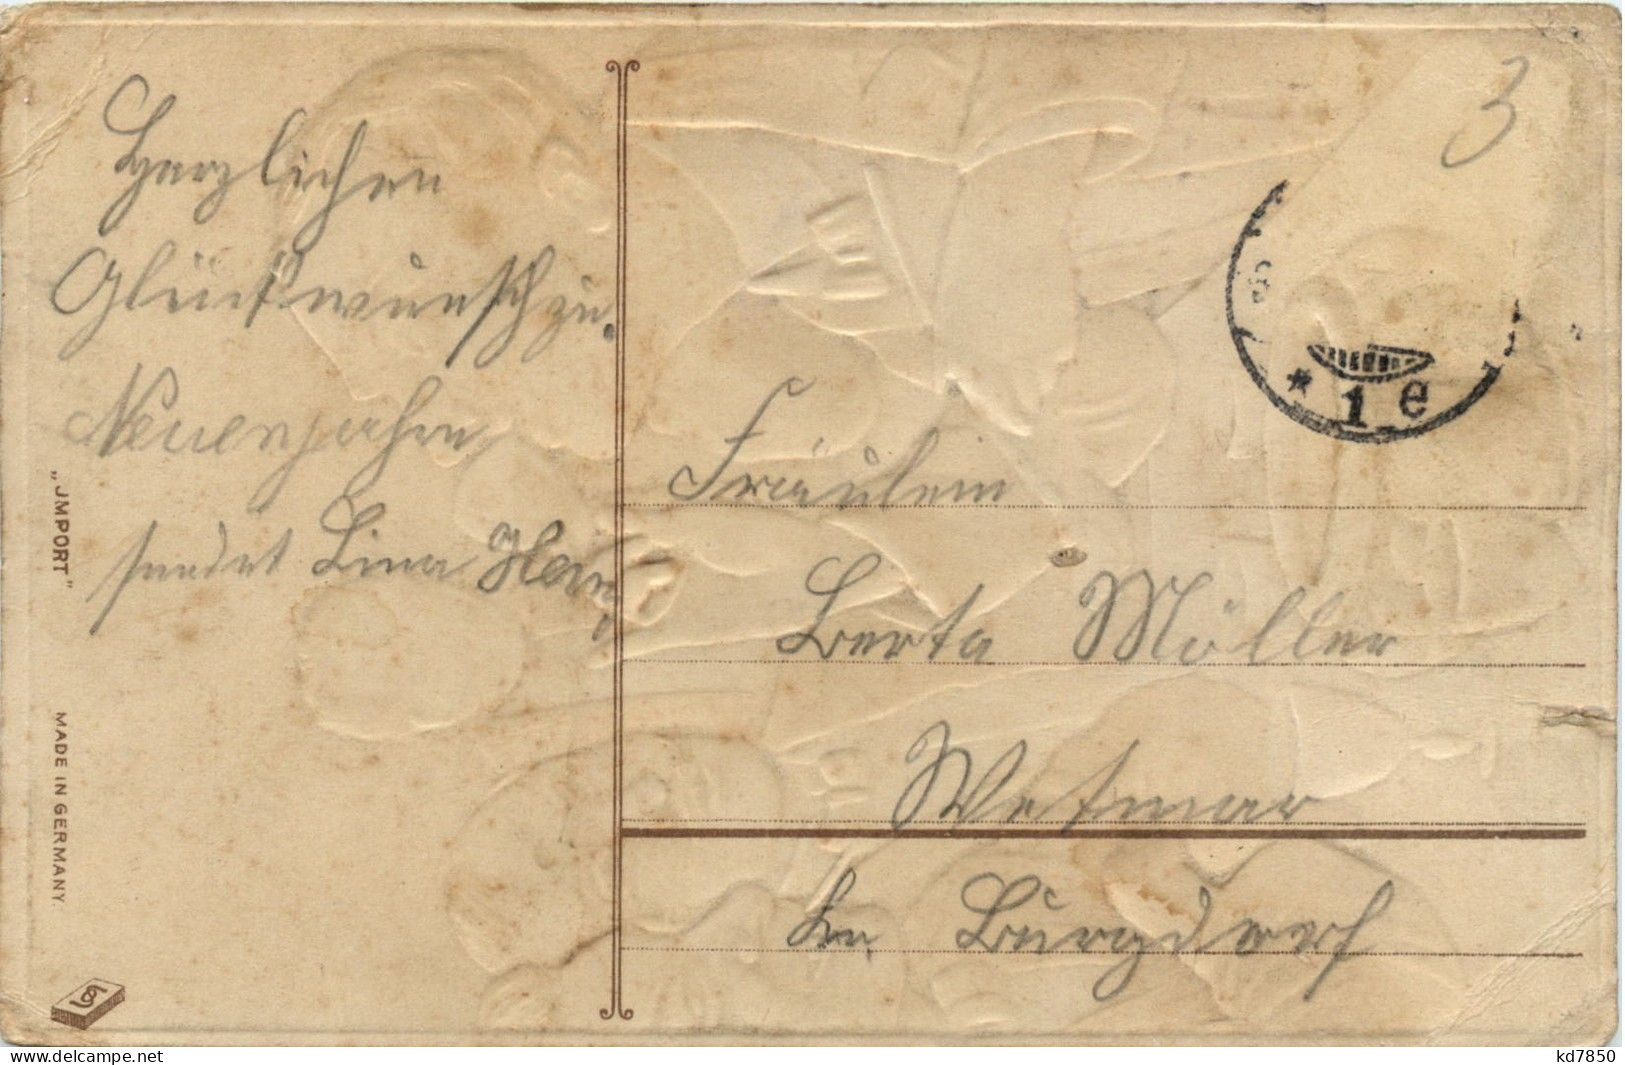 Herzlichen
Glückwunsch zu.
Neuenjahre
sendet Lina
Fräulein
Berta Möller
Wetmar
bei Burgdorf
3
* 1 e
„JMPORT"
MADE IN GERMANY.
www.delcampe.net
kd7850